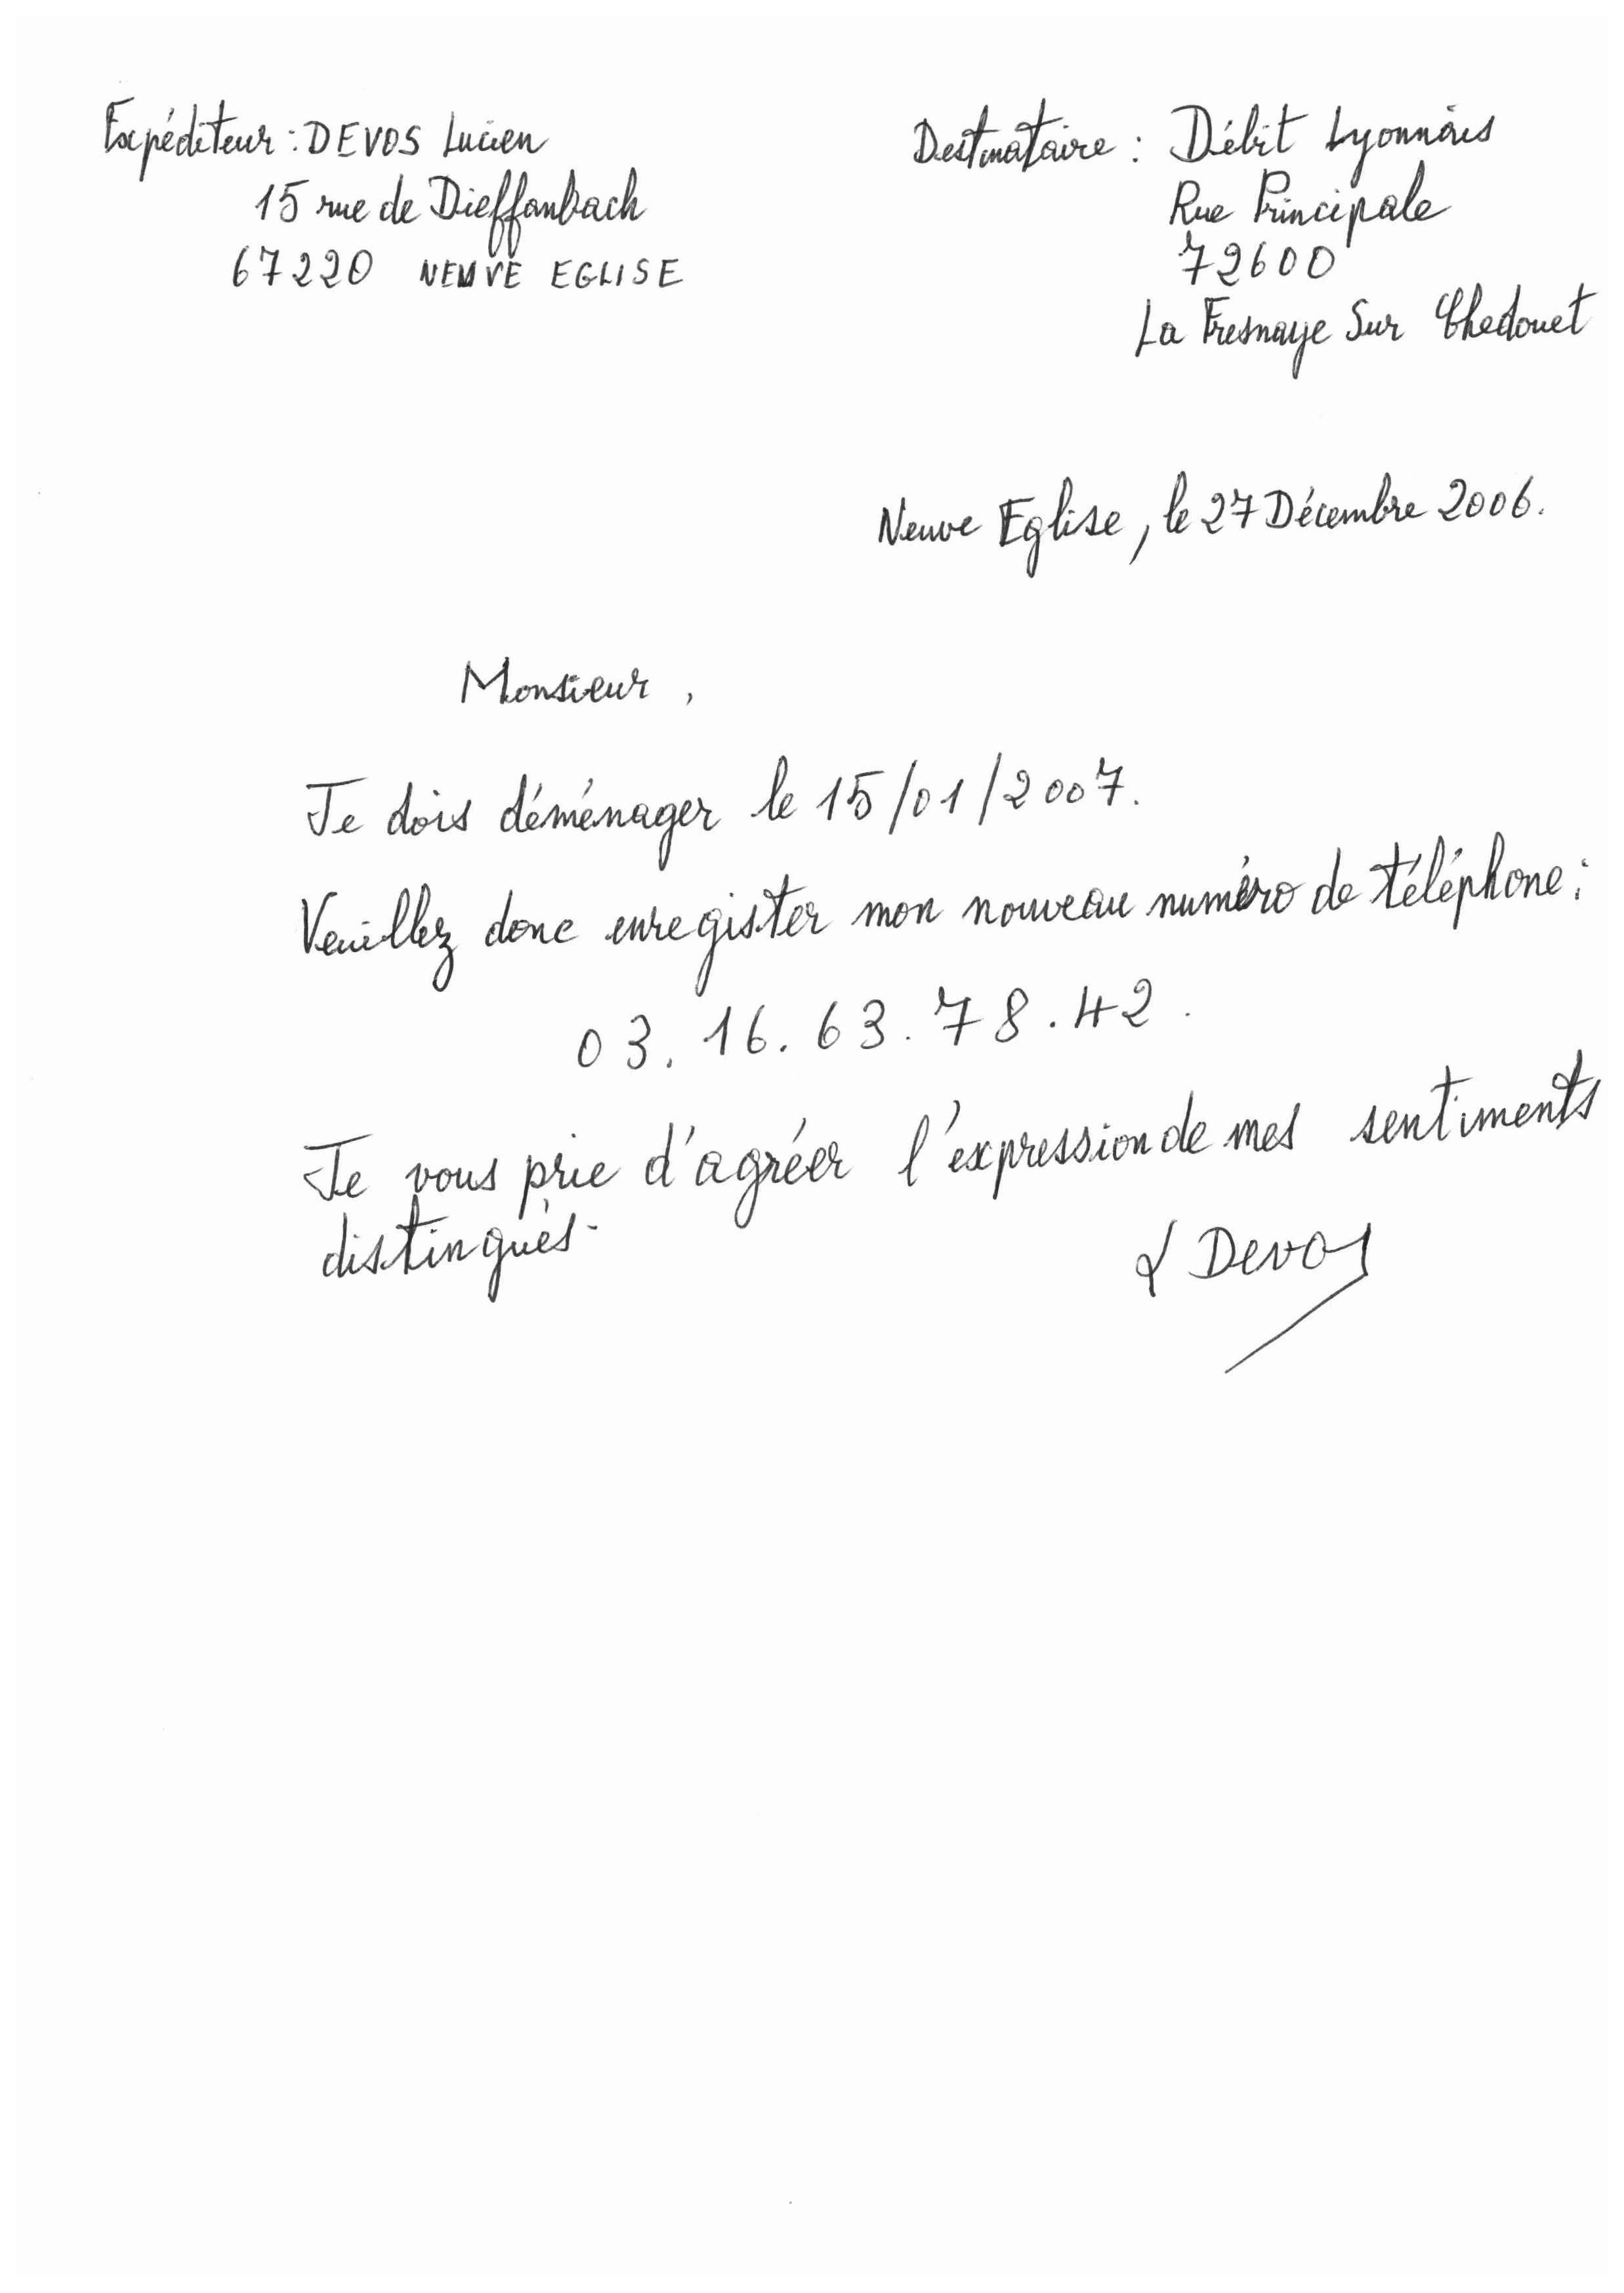 Expéditeur : DEVOS Lucien
15 rue de Dieffanbach
67220 NEUVE EGLISE
Destinataire : Débit Lyonnais
Rue Principale
72600
La Fresnaye Sur Chedouet
Neuve Eglise, le 27 Décembre 2006.
Monsieur,
Je dois déménager le 15/01/2007.
Veuillez donc enregister mon nouveau numéro de téléphone :
03. 16. 63. 78. 42.
Je vous prie d'agréer l'expression de mes sentiments
distingués.
L Devos